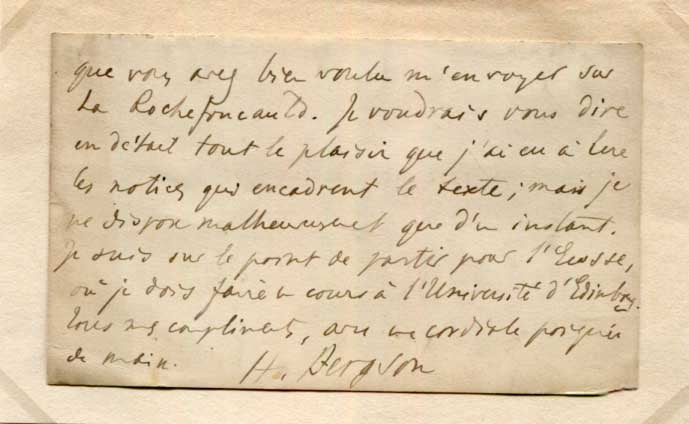 que vous avez bien voulu m'envoyer sur
La Rochefoucauld. Je voudrais vous dire
en détail tout le plaisir que j'ai eu à lire
les notices qui encadrent le texte ; mais je
ne dispose malheureusement que d'un instant.
Je suis sur le point de partir pour l'Ecosse,
où je dois faire un cours à l'Université d'Edinburg.
Tous mes compliments, avec une cordiale poignée
de main.
H. Bergson